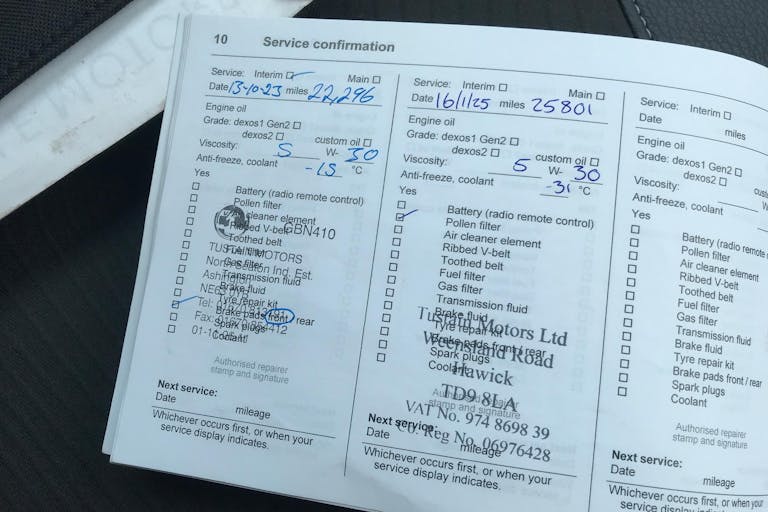 10 Service confirmation
Service: Interim Main
Date 13-10-23 miles 22,296
Engine oil
Grade: dexos1 Gen2
dexos2 custom oil
Viscosity: 5 W- 30
Anti-freeze, coolant -15 °C
Yes
Battery (radio remote control)
Pollen filter
Air cleaner element
Ribbed V-belt
Toothed belt
Fuel filter
Gas filter
Transmission fluid
Brake fluid
Tyre repair kit
Brake pads front / rear
Spark plugs
Coolant
GBN410
MOTORS
North Seaton Ind. Est.
Ashington
Tel:
Fax:
Authorised repairer
stamp and signature
Next service:
Date mileage
Whichever occurs first, or when your
service display indicates.
Service: Interim Main
Date 16/1/25 miles 25801
Engine oil
Grade: dexos1 Gen2
dexos2 custom oil
Viscosity: 5 W- 30
Anti-freeze, coolant -31 °C
Yes
Battery (radio remote control)
Pollen filter
Air cleaner element
Ribbed V-belt
Toothed belt
Fuel filter
Gas filter
Transmission fluid
Brake fluid
Tyre repair kit
Brake pads front / rear
Spark plugs
Coolant
Tustain Motors Ltd
Weensland Road
Hawick
TD9 8LA
VAT No. 974 8698 39
Co. Reg No. 06976428
Authorised repairer
stamp and signature
Next service:
Date mileage
Whichever occurs first, or when your
service display indicates.
Service: Interim
Date miles
Engine oil
Grade: dexos1 Gen2
dexos2
Viscosity:
Anti-freeze, coolant
Yes
Battery (radio remote
Pollen filter
Air cleaner element
Ribbed V-belt
Toothed belt
Fuel filter
Gas filter
Transmission fluid
Brake fluid
Tyre repair kit
Brake pads front / rear
Spark plugs
Coolant
Authorised repairer
stamp and signature
Next service:
Date mileage
Whichever occurs first, or when your
service display indicates.